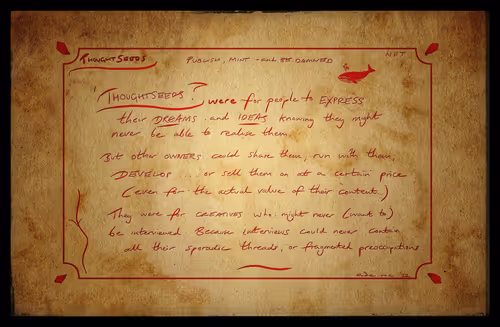 THOUGHTSEEDS
PUBLISH, MINT AND BE DAMNED
NFT
'THOUGHTSEEDS' were for people to EXPRESS
their DREAMS and IDEAS knowing they might
never be able to realise them.
But other OWNERS could share them, run with them,
DEVELOP .. or sell them on at a certain price
(even for the actual value of their content.)
They were for CREATIVES who might never (want to)
be interviewed Because interviews could never contain
all their sporadic threads, or fragmented preoccupations